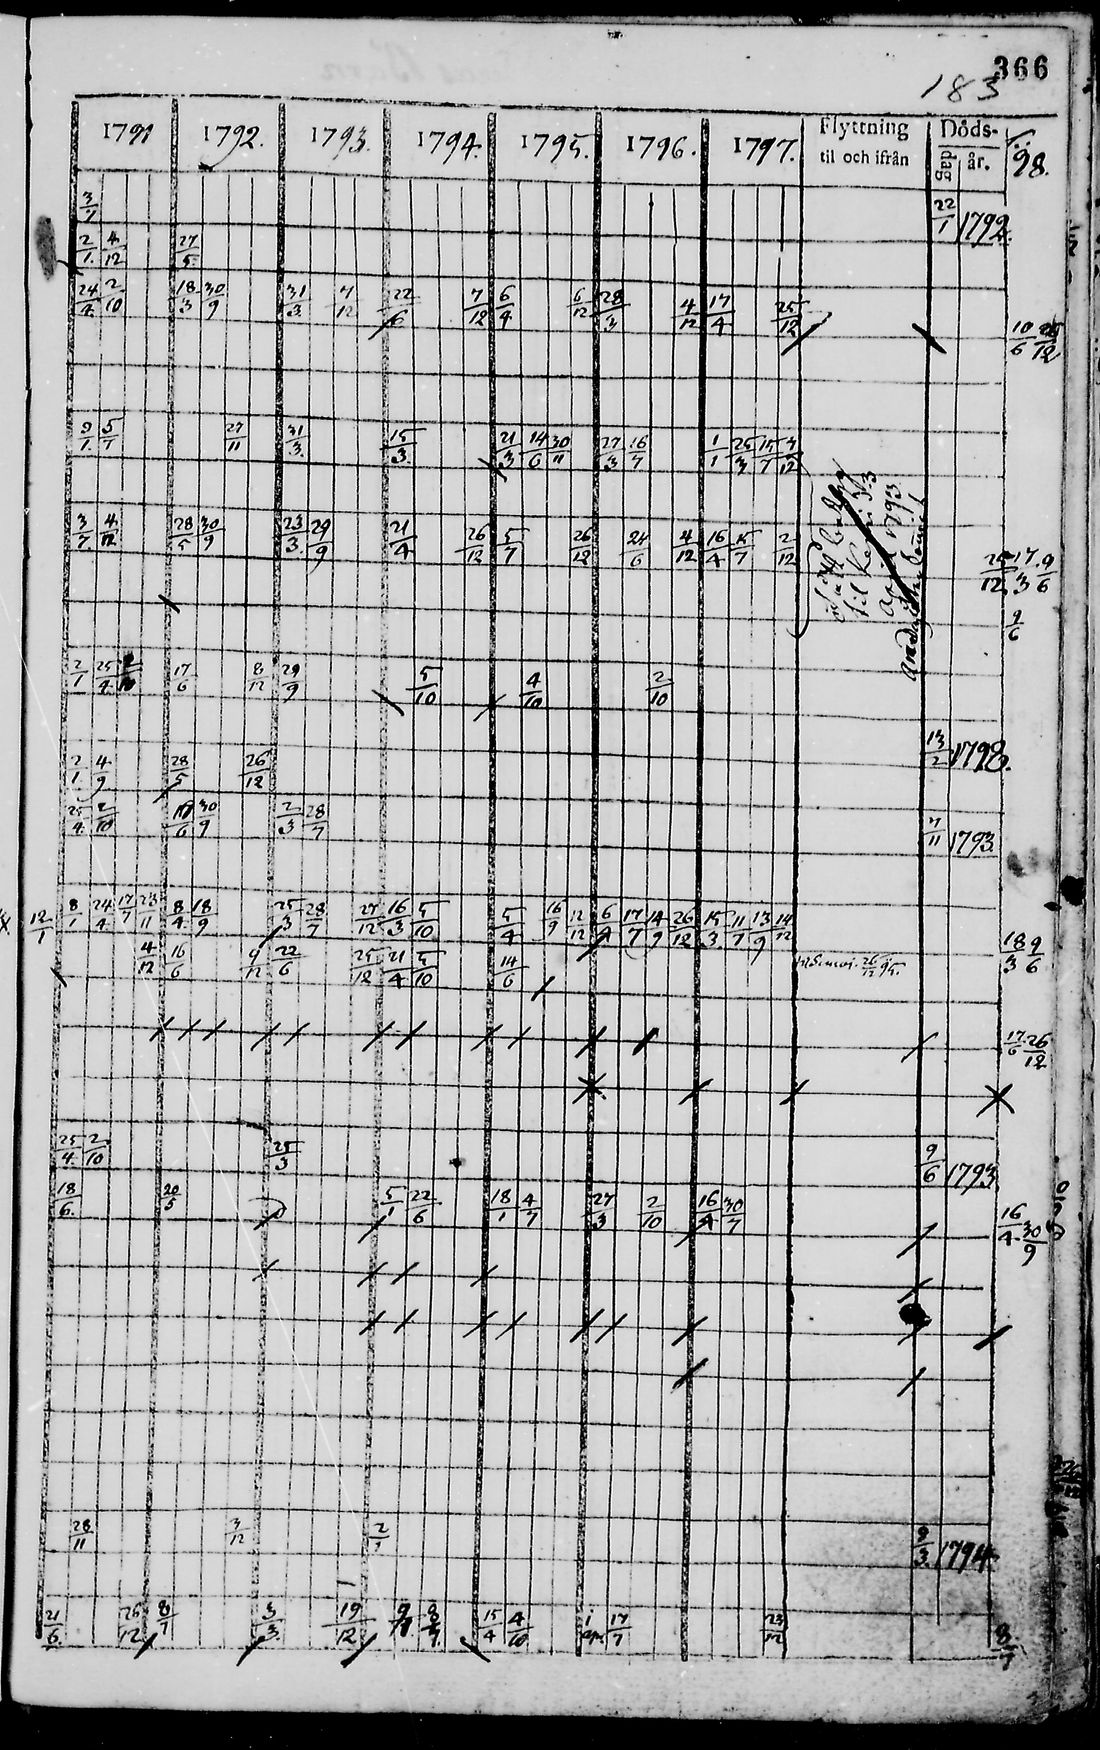 366
183
1791 1792. 1793. 1794. 1795. 1796. 1797. Flyttning til och ifrån Döds- dag år. 98.
3/7 22/1 1792.
2/1. 4/12 27/5.
24/4. 2/10 18/3 30/9 31/3. 7/12 22/6 7/12 6/4 6/12 28/3 4/12 17/4 25/12
10/6 26/12
5/7 27/11 31/3. 15/3. 21/3 14/6 30/11 27/3 16/7 1/1 25/3 15/7 7/12
3/7. 4/12 28/5 30/9 23/3. 29/9 21/4 26/12 5/7 26/12 24/6 4/12 16/4 15/7 2/12
25/12 17/3 9/6
april 1793.
9/6
2/1 25/4 2/10 17/6 8/12 29/9 5/10 4/10 2/10
13/2 1798.
2/1 4/9 28/5 26/12
25/4. 2/10 17/6 30/9 2/3 28/7 7/11 1793.
12/1 8/1 24/4 17/7 23/11 8/4. 18/9 25/3 28/7 27/12 16/3 5/10 5/4 16/9 12/12 6/4 17/7 14/9 26/12 15/3 11/7 13/9 14/12
18/3 9/6
4/12 16/6 9/12 22/6 25/12 21/4 5/10 14/6 26/12 95.
17/6 26/12
25/4. 2/10 25/3 9/6 1793
18/6. 20/5 5/1 22/6 18/1 4/7 27/3 2/10 16/4 30/7
16/4 30/9
28/11 3/12 2/1 9/3. 1794.
21/6. 26/12 8/7 3/3. 19/12 8/7. 15/4 4/10 17/7 23/12 8/7